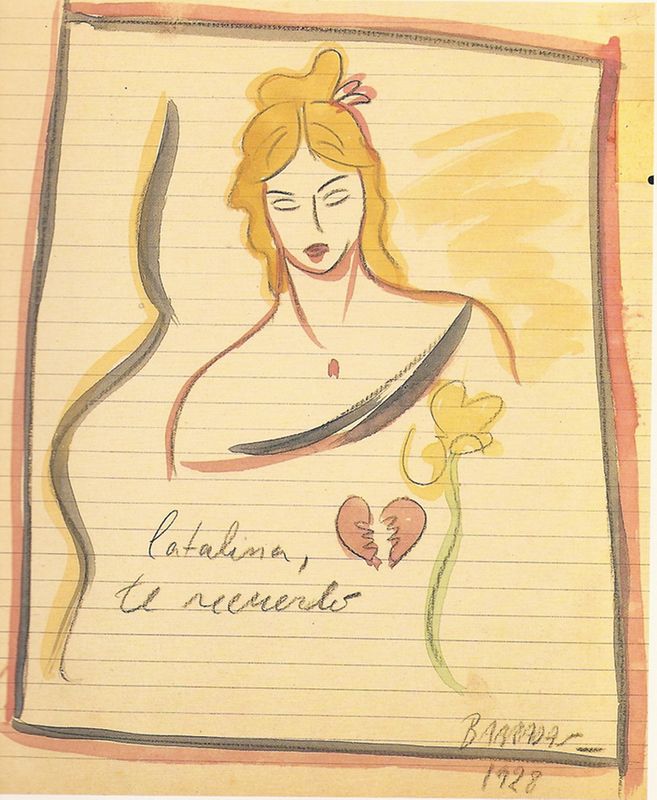 Catalina,
te recuerdo
BARRADAS
1928